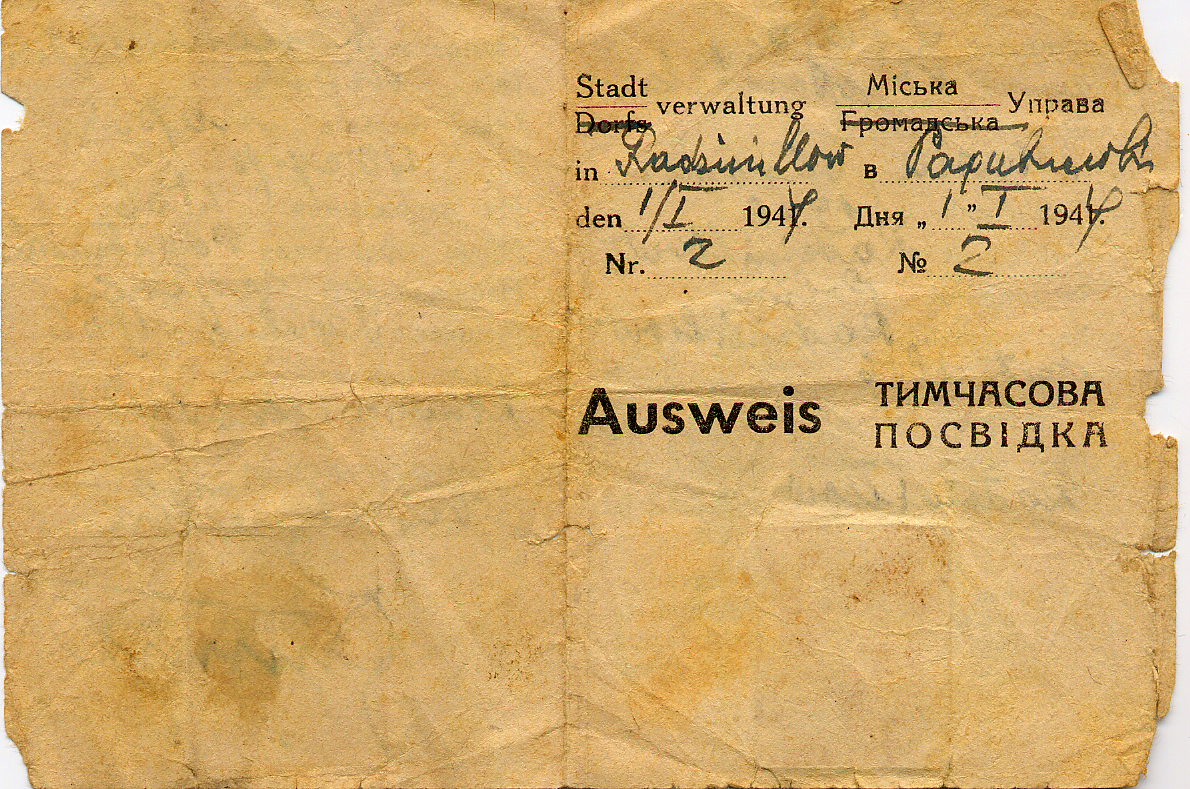 Stadt verwaltung Міська Управа
Dorfs Громадська
in Radsiwillow в
den 1/I 1944. Дня „1” I 1944.
Nr. 2 № 2
Ausweis ТИМЧАСОВА
ПОСВІДКА